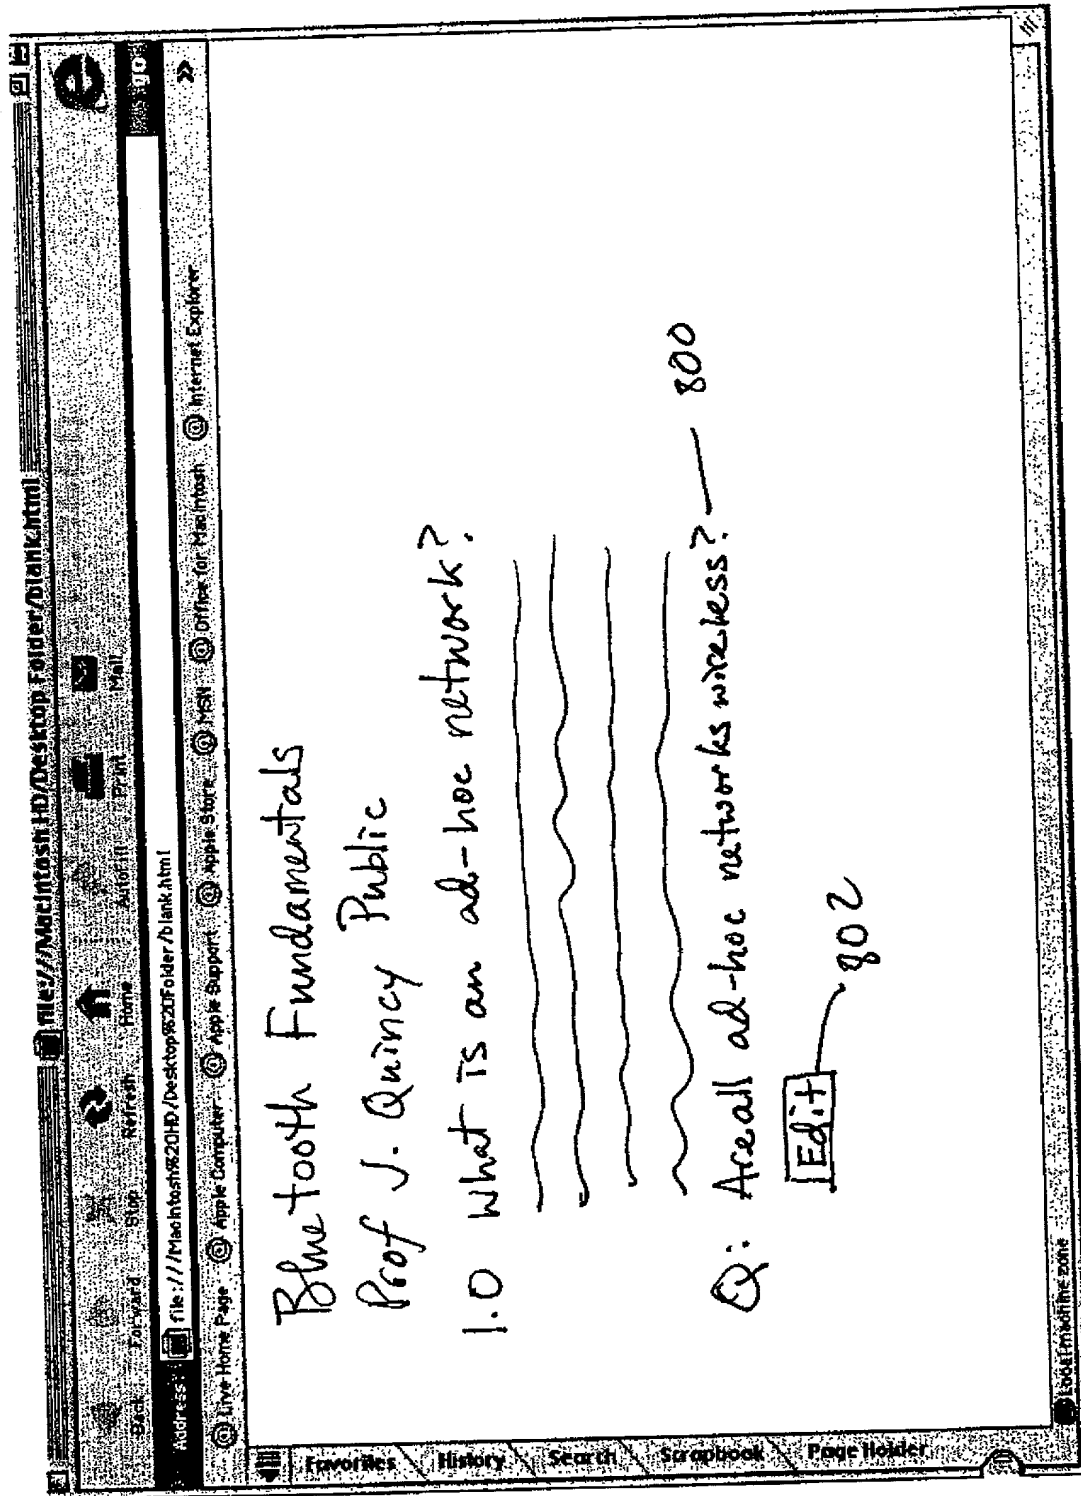 file:///Macintosh HD/Desktop Folder/blank.html
Back Forward Stop Refresh Home Autofill Print Mail
Address file:///Macintosh%20HD/Desktop%20Folder/blank.html go
Live Home Page Apple Computer Apple Support Apple Store MSN Office for Macintosh Internet Explorer
Favorites
History
Search
Scrapbook
Page Holder
Bluetooth Fundamentals
Prof J. Quincy Public
1.0 What is an ad-hoc network?
Q: Are all ad-hoc networks wireless? 800
Edit 802
Local machine zone